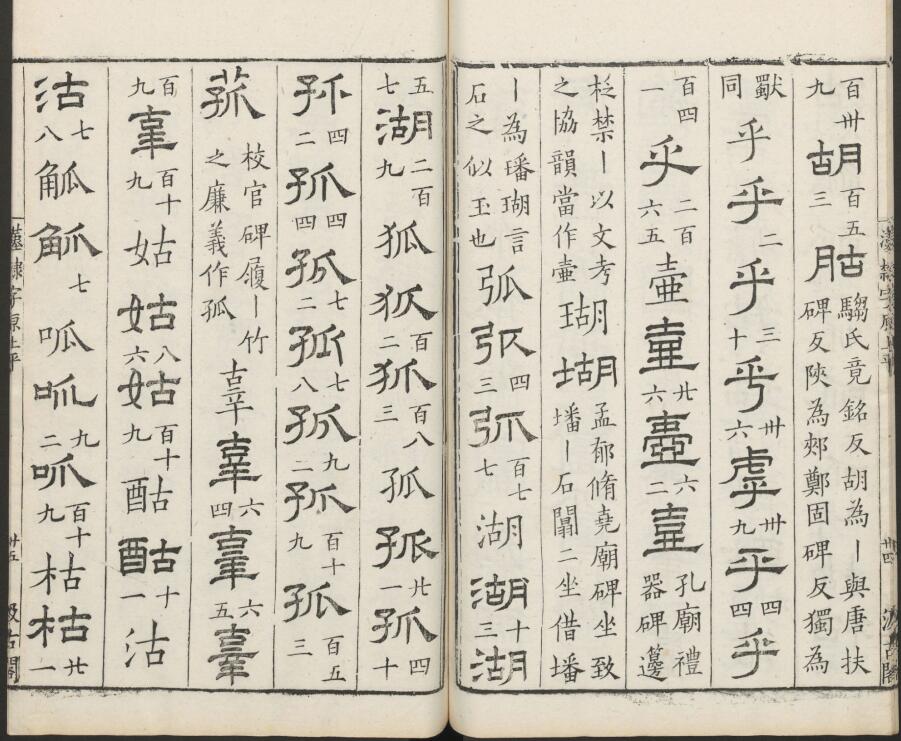 百卅九胡百五三胡騶氏竟銘反胡為丨與唐扶碑反陜為郟鄭固碑反獨為
獸同乎乎二乎三十乎卅六虖卅九乎四四乎
百四一乎二百六五壺壺廿六壺六二壺孔廟禮器碑籩
柉禁丨以文考之協韻當作壷瑚瑚孟郁脩堯廟碑坐致璠丨石闢二坐借璠
丨為璠瑚言石之似玉也弧弧四三弧百七七湖湖十三湖
漢隸字原上平 卅四 汲古閣
五七湖二百九狐狐百二狐百八三孤孤廿一孤四十
孤四二孤四四孤七二孤七八孤九二孤百十九孤百五三
菰校官碑履丨竹之廉義作孤辜辜六四辜六五辜
百九辜百十九姑姑八六姑百十九酤酤十一沽
沽七八觚觚七呱呱九二呱百十九枯枯廿一
漢隸字原上平 卅五 汲古閣